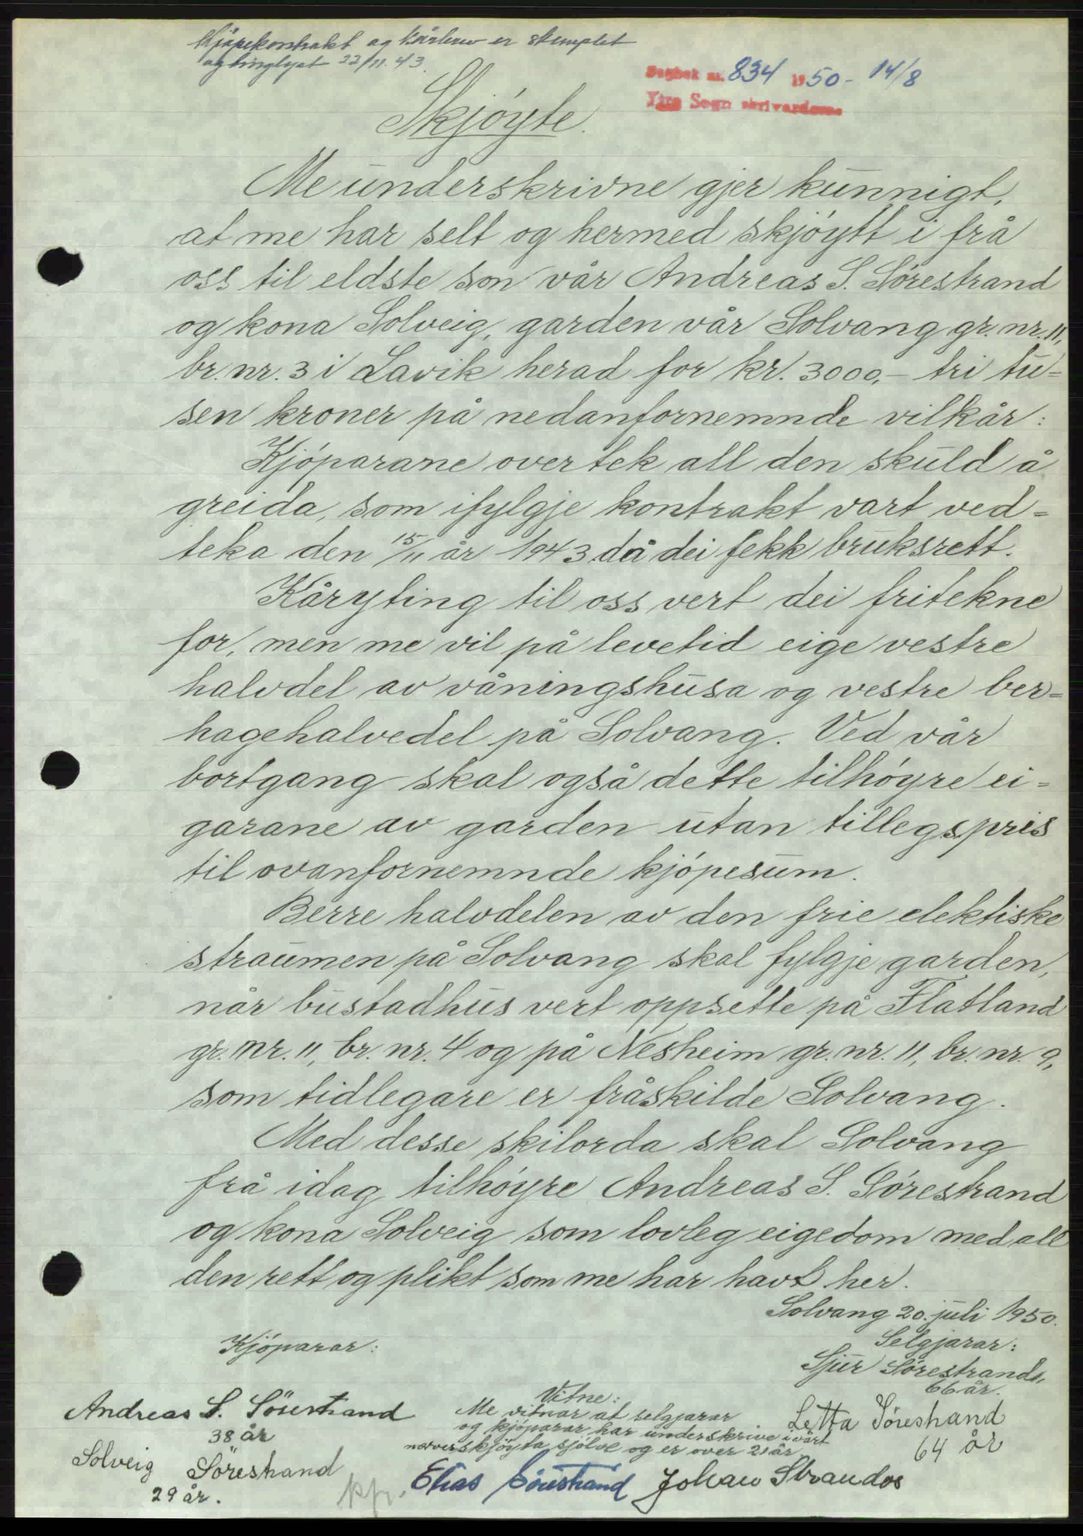 Kjøpekontrakt og kårbrev er stemplet
og tinglyst 22/11.43.
Dagbok nr. 834 1950 - 14/8
Ytre Sogn skrivardøme
Skjøyte.
Me underskrivne gjer kunnigt,
at me har selt og hermed skjøytt i frå
oss til eldste son vår Andreas S. Sørestrand
og kona Solveig, garden vår Solvang gr. nr. 11,
br. nr. 3 i Lavik herad for kr. 3000,- tri tu-
sen kroner på nedanfornemnde vilkår:
Kjøparane overtek all den skuld å
greida, som ifylgje kontrakt vart ved-
teka den 15/11 år 1943 då dei fekk bruksrett.
Kåryting til oss vert dei fritekne
for, men me vil på levetid eige vestre
halvdel av våningshusa og vestre ber-
hagehalvedel på Solvang. Ved vår
bortgang skal også dette tilhøyre ei-
garane av garden utan tillegspris
til ovanfornemnde kjøpesum.
Berre halvdelen av den frie elektiske
straumen på Solvang skal fylgje garden,
når bustadhus vert oppsette på Flatland
gr. nr. 11, br. nr. 4 og på Nesheim gr. nr. 11, br. nr. 9,
som tidlegare er fråskilde Solvang.
Med desse skilorda skal Solvang
frå idag tilhøyre Andreas S. Sørestrand
og kona Solveig som lovleg eigedom med all
den rett og plikt som me har havt her.
Solvang 20. juli 1950.
Kjøparar:
Selgjarar:
Sjur Sørestrand,
66 år.
Andreas S. Sørestrand
38 år
Solveig Sørestrand
29 år.
Vitne:
Me vitnar at selgjarar
og kjøparar har underskrive i vårt
nærver skjøyta sjølve og er over 21 år
Letta Sørestrand
64 år
Elias Sørestrand Johan Strandos